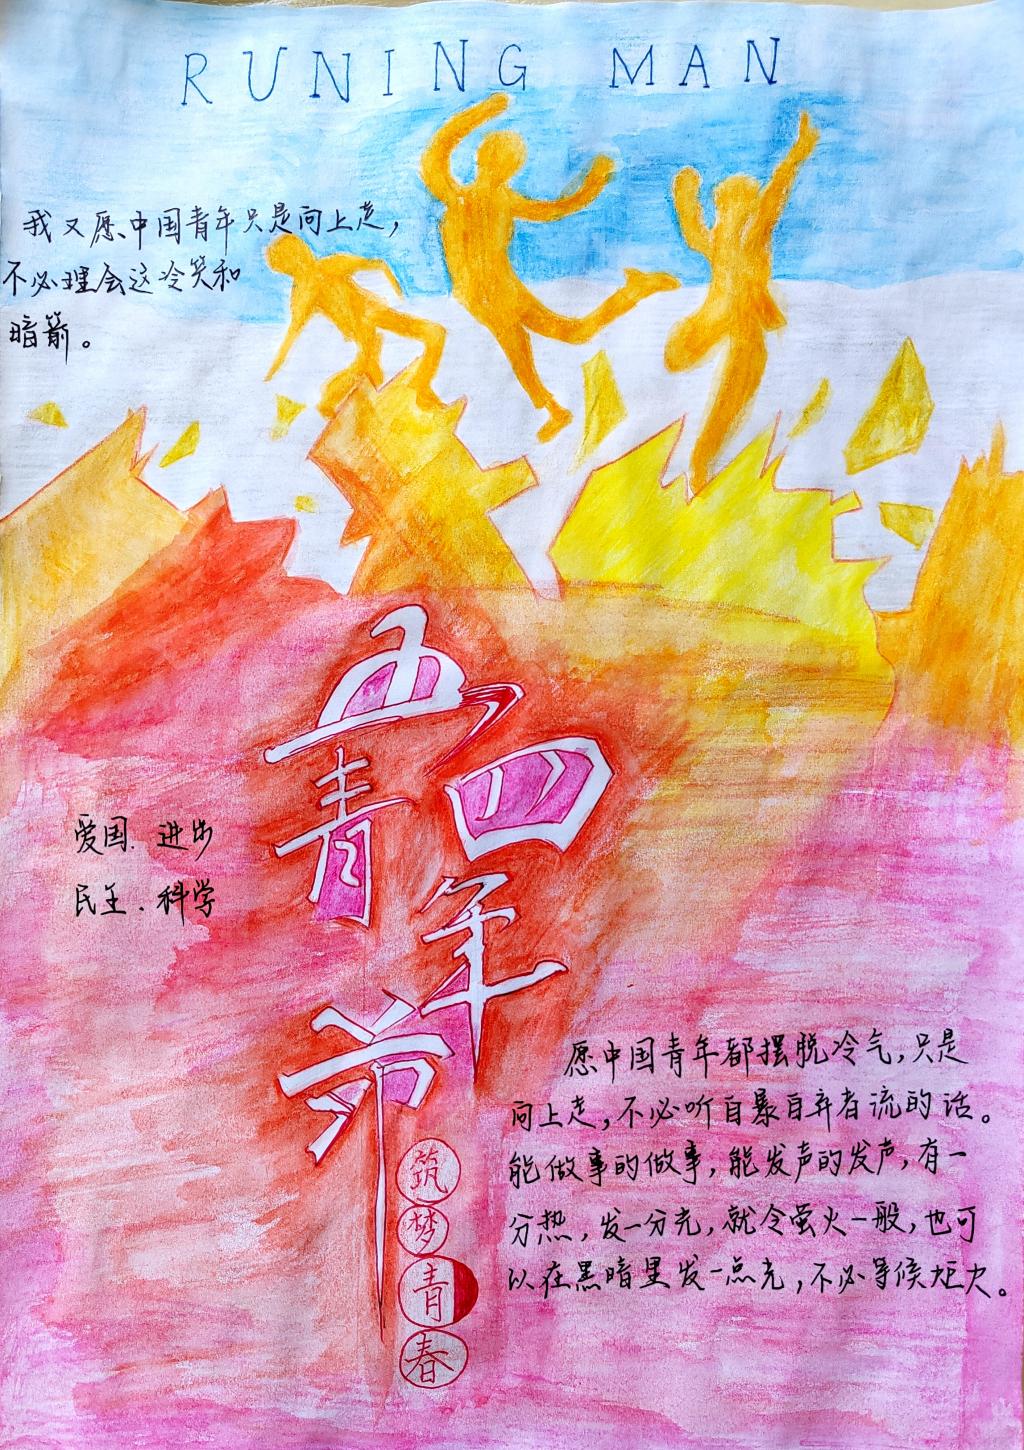 RUNING MAN
我又愿中国青年只是向上走，
不必理会这冷笑和
暗箭。
五四
青年
节
爱国．进步
民主．科学
筑梦青春
愿中国青年都摆脱冷气，只是
向上走，不必听自暴自弃者流的话。
能做事的做事，能发声的发声，有一
分热，发一分光，就令萤火一般，也可
以在黑暗里发一点光，不必等候炬火。